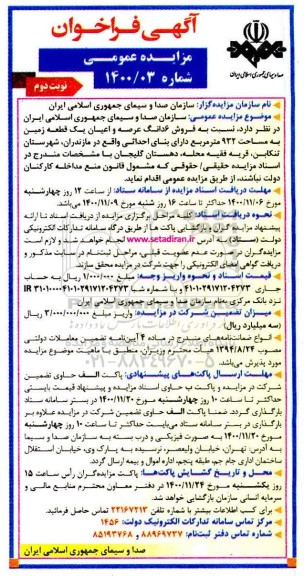 آگهی فراخوان
مزایده عمومی
شماره ۱۴۰۰/۰۳
نوبت دوم
صدا و سیمای جمهوری اسلامی ایران
نام سازمان مزایده‌گزار: سازمان صدا و سیمای جمهوری اسلامی ایران
موضوع مزایده عمومی: سازمان صدا و سیمای جمهوری اسلامی ایران
در نظر دارد، نسبت به فروش ۶دانگ عرصه و اعیان یک قطعه زمین
به مساحت ۹۲۲ مترمربع دارای بنای احداثی واقع در مازندران، شهرستان
تنکابن، قریه فقیه محله، دهستان گلیجان با مشخصات مندرج در
اسناد مزایده حقیقی/ حقوقی که مشمول قانون منع مداخله کارکنان
دولت نباشند، از طریق مزایده عمومی اقدام نماید.
مهلت دریافت اسناد مزایده از سامانه ستاد: از ساعت ۱۲ روز چهارشنبه
مورخ ۱۴۰۰/۱۱/۰۶ حداکثر تا ساعت ۱۶ روز شنبه مورخ ۱۴۰۰/۱۱/۰۹ می‌باشد.
نحوه دریافت اسناد: کلیه مراحل برگزاری مزایده از دریافت اسناد تا ارائه
پیشنهاد مزایده‌گران و بازگشایی پاکت ها از طریق درگاه سامانه تدارکات الکترونیکی
دولت (ستاد) به آدرس www.setadiran.ir انجام خواهد شد و لازم است
مزایده‌گران در صورت عدم عضویت قبلی، مراحل ثبت‌نام در سایت مذکور و
دریافت گواهی امضای الکترونیکی را جهت شرکت در مزایده محقق سازند.
قیمت اسناد و نحوه واریز وجه: مبلغ ۱/۰۰۰/۰۰۰ ریال به حساب
نزد بانک مرکزی به‌نام سازمان صدا و سیمای جمهوری اسلامی ایران
میزان تضمین شرکت در مزایده: واریز مبلغ ۳/۰۰۰/۰۰۰/۰۰۰ ریال
(سه میلیارد ریال)
انواع ضمانت‌نامه‌های مندرج در ماده ۴ آیین‌نامه تضمین معاملات دولتی
مصوب ۱۳۹۴/۸/۲۴ هیأت محترم وزیران مطابق با ماهیت موضوع مزایده
مورد پذیرش می‌باشد.
مهلت ارسال پاکت‌های پیشنهادی: پاکت الف حاوی تضمین
شرکت در مزایده و پاکت ب حاوی اسناد مزایده و پیشنهاد قیمت بایستی
حداکثر تا ساعت ۱۰ روز چهارشنبه مورخ ۱۴۰۰/۱۱/۲۰ در بستر سامانه ستاد
بارگذاری گردد. ضمنا پاکت الف حاوی تضمین شرکت در مزایده علاوه بر
بارگذاری در بستر سامانه ستاد می‌بایست حداکثر تا ساعت ۱۰ روز چهارشنبه
مورخ ۱۴۰۰/۱۱/۲۰ به صورت فیزیکی و درب بسته به سازمان صدا و سیما
به آدرس: تهران، خیابان ولیعصر، نرسیده به پارک وی، خیابان استقلال
ساختمان اداری جام جم، طبقه پنجم، اداره اموال و بیمه ارسال گردد.
محل و تاریخ گشایش پاکت‌ها: پاکت مزایده‌گران رأس ساعت ۱۵
روز یکشنبه مورخ ۱۴۰۰/۱۱/۲۴ در دفتر معاون محترم منابع مالی و
سرمایه انسانی سازمان بازگشایی خواهد شد.
برای کسب اطلاعات بیشتر با شماره تلفن ۲۲۱۶۷۲۱۳ تماس حاصل فرمائید.
مرکز تماس سامانه تدارکات الکترونیک دولت: ۱۴۵۶
شماره تماس دفتر ثبت‌نام: ۸۸۹۶۹۷۳۷ و ۸۵۱۹۳۷۶۸
صدا و سیمای جمهوری اسلامی ایران